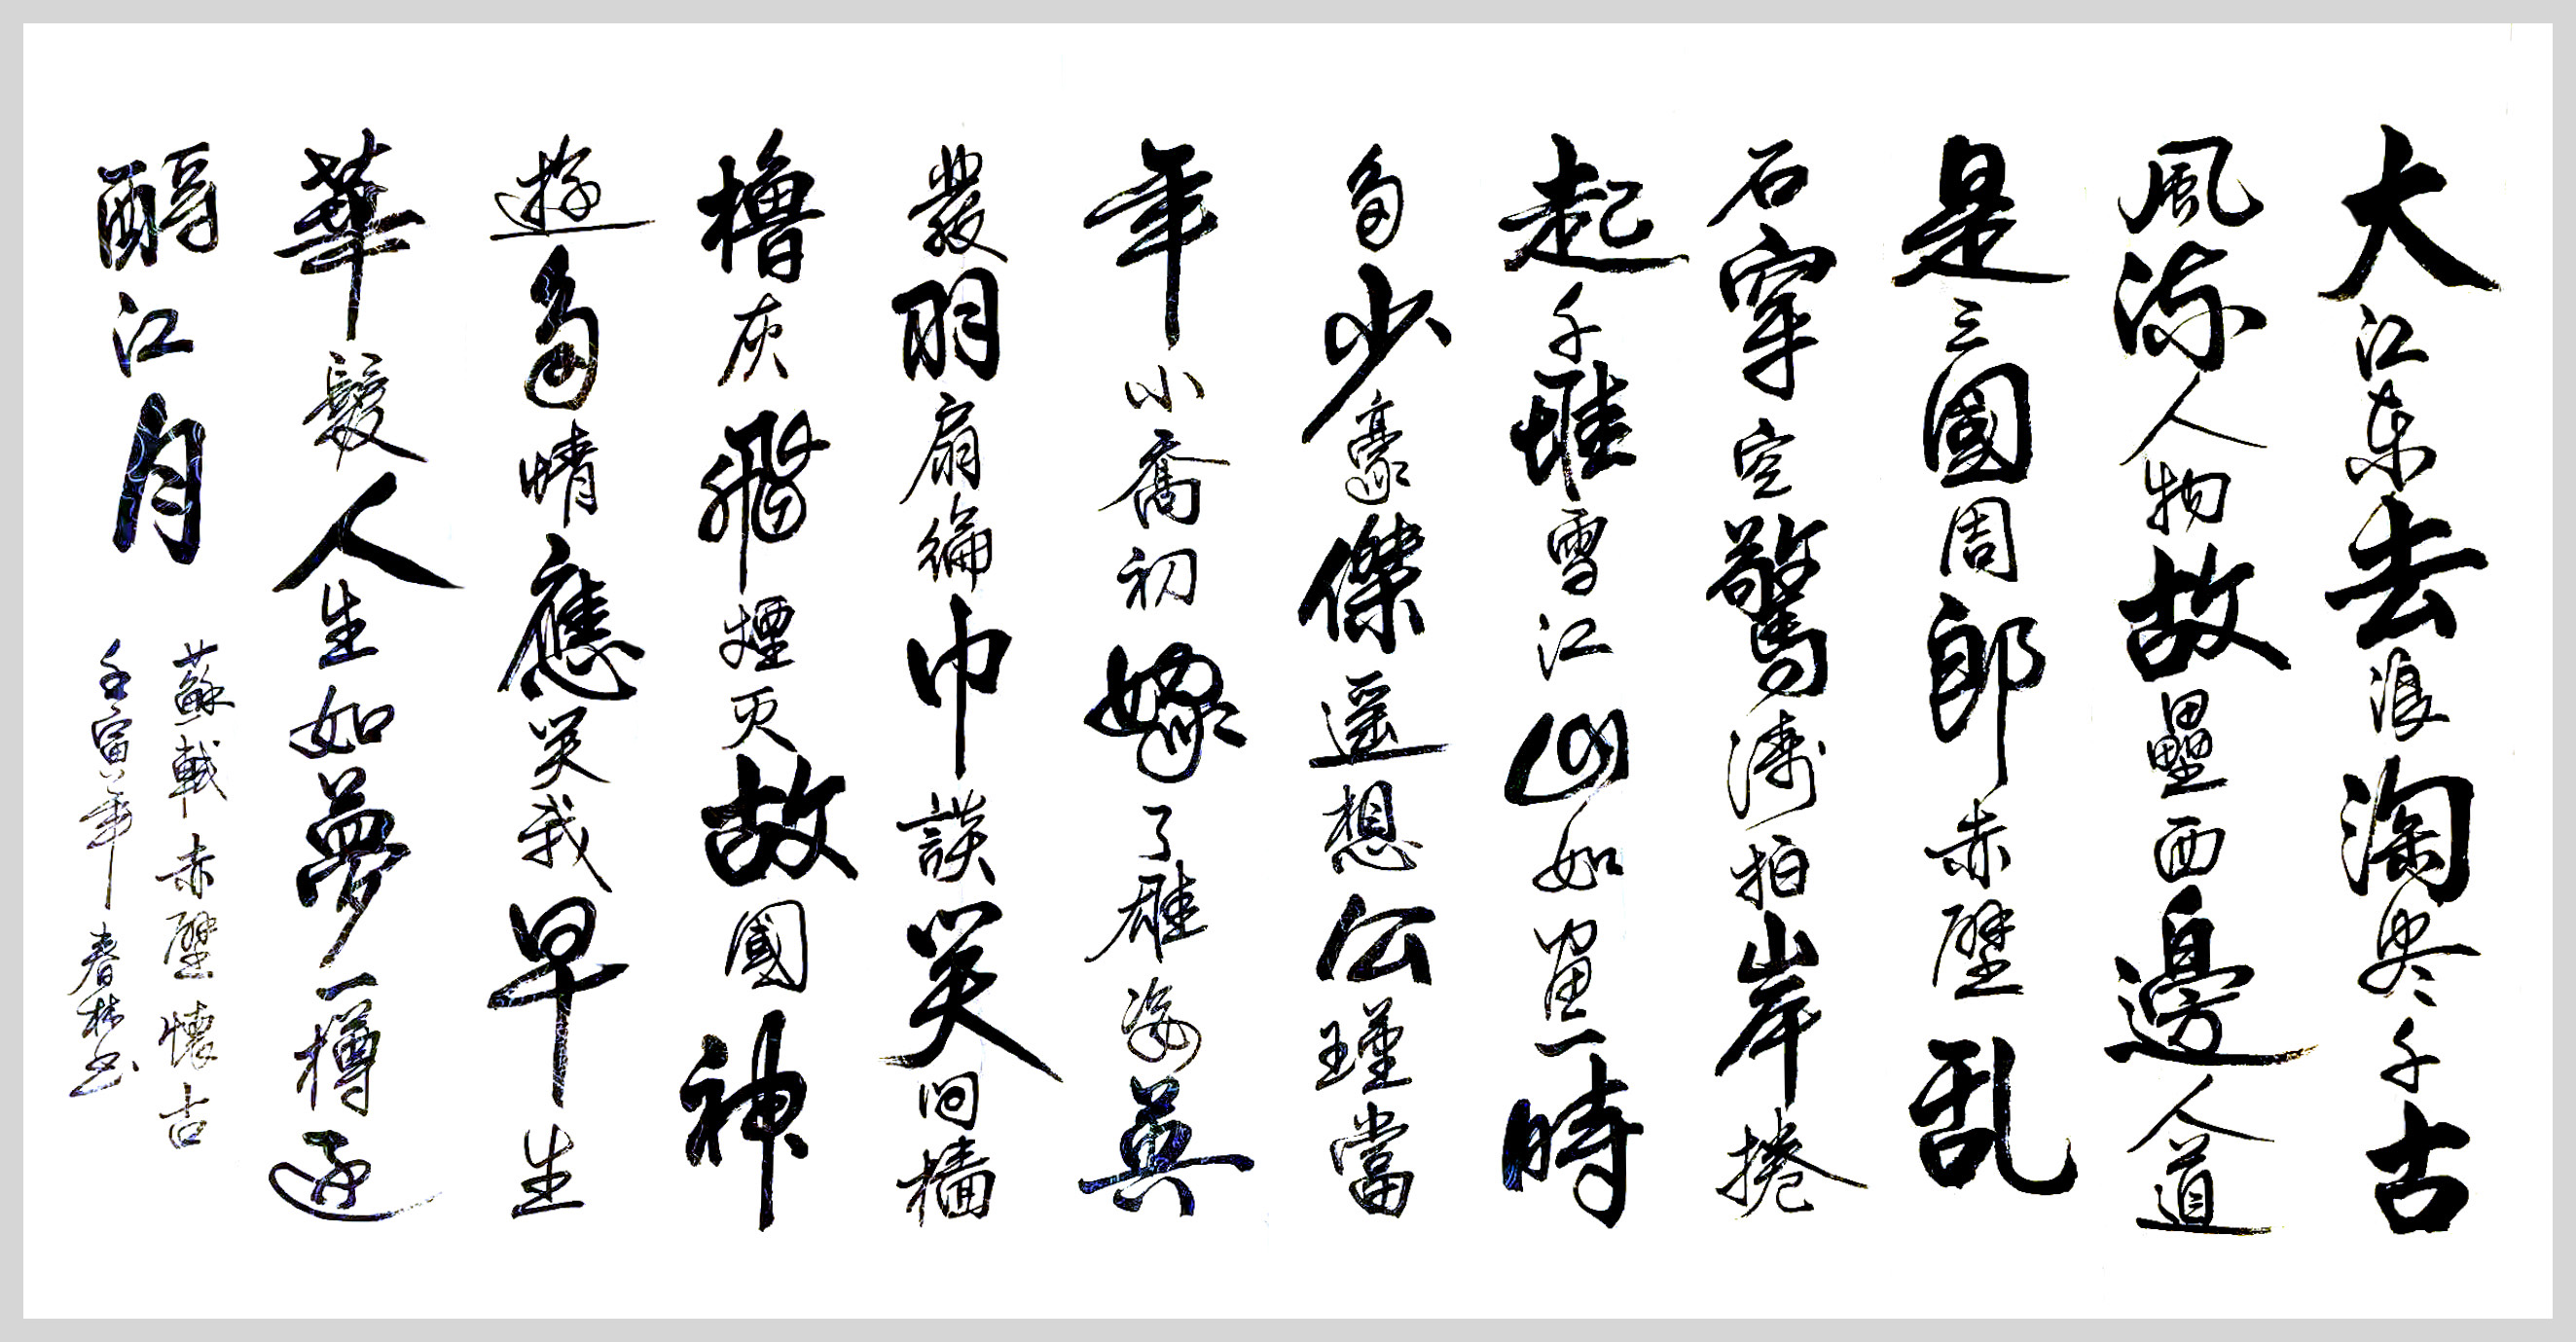 大江東去浪淘尽千古
風流人物故壘西邊人道
是三國周郎赤壁乱
石穿空驚濤拍岸捲
起千堆雪江山如畫一時
多少豪傑遥想公瑾當
年小喬初嫁了雄姿英
發羽扇綸巾談笑间檣
櫓灰飛煙灭故國神
遊多情應笑我早生
華髮人生如夢一樽还
酹江月
蘇軾赤壁懷古
壬寅年春林书